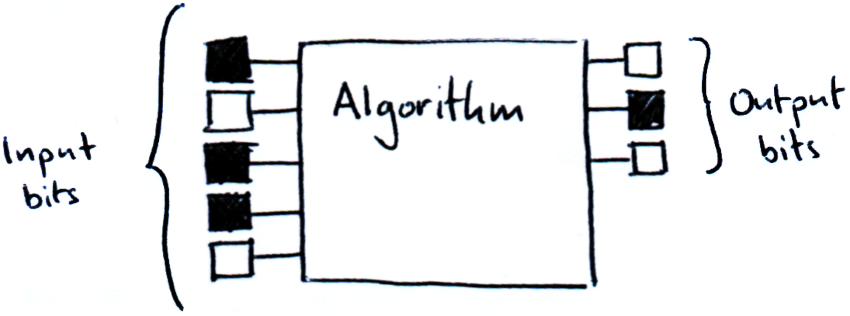 Input
bits
Algorithm
Output
bits